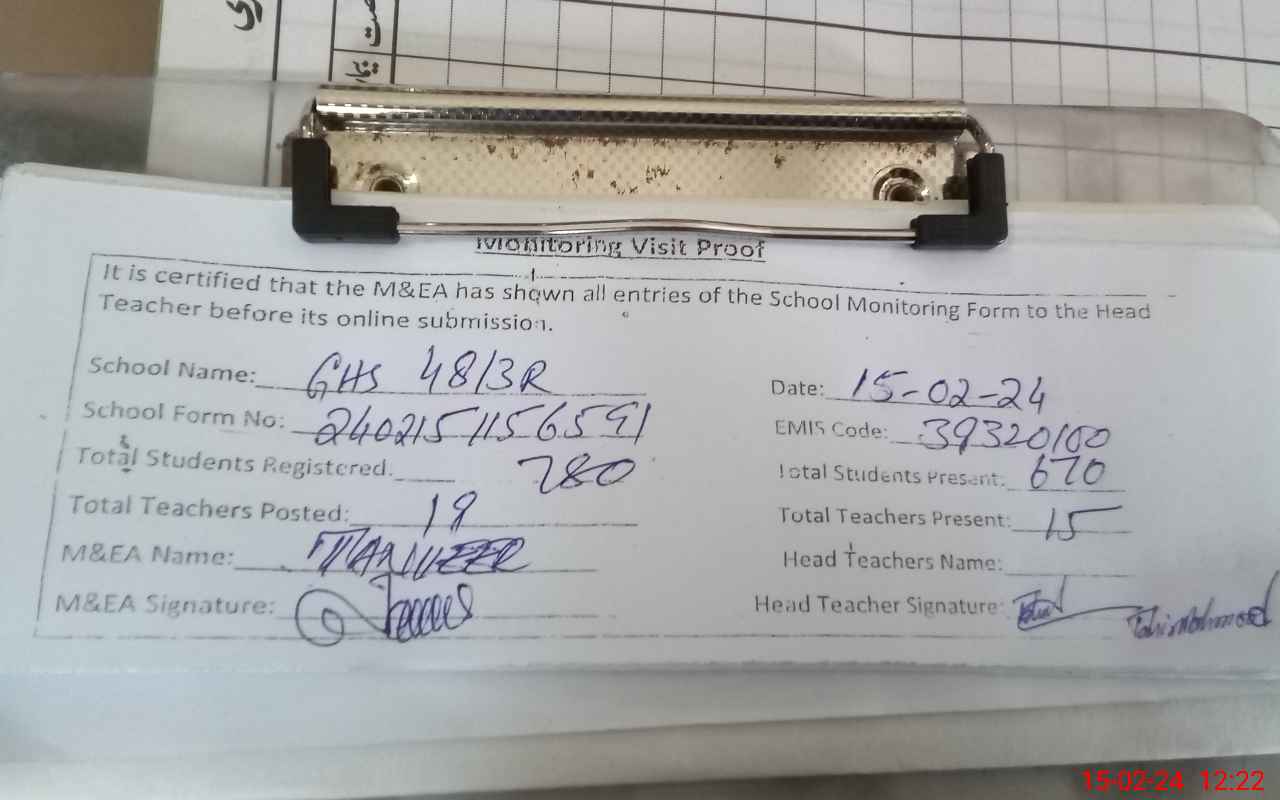 Monitoring Visit Proof
It is certified that the M&EA has shown all entries of the School Monitoring Form to the Head
Teacher before its online submission.
School Name: GHS 48/3R
Date: 15-02-24
School Form No: 2402151156591
EMIS Code: 39320100
Total Students Registered. 780
Total Students Present: 670
Total Teachers Posted: 19
Total Teachers Present: 15
M&EA Name:
Head Teachers Name:
M&EA Signature:
Head Teacher Signature:
15-02-24 12:22